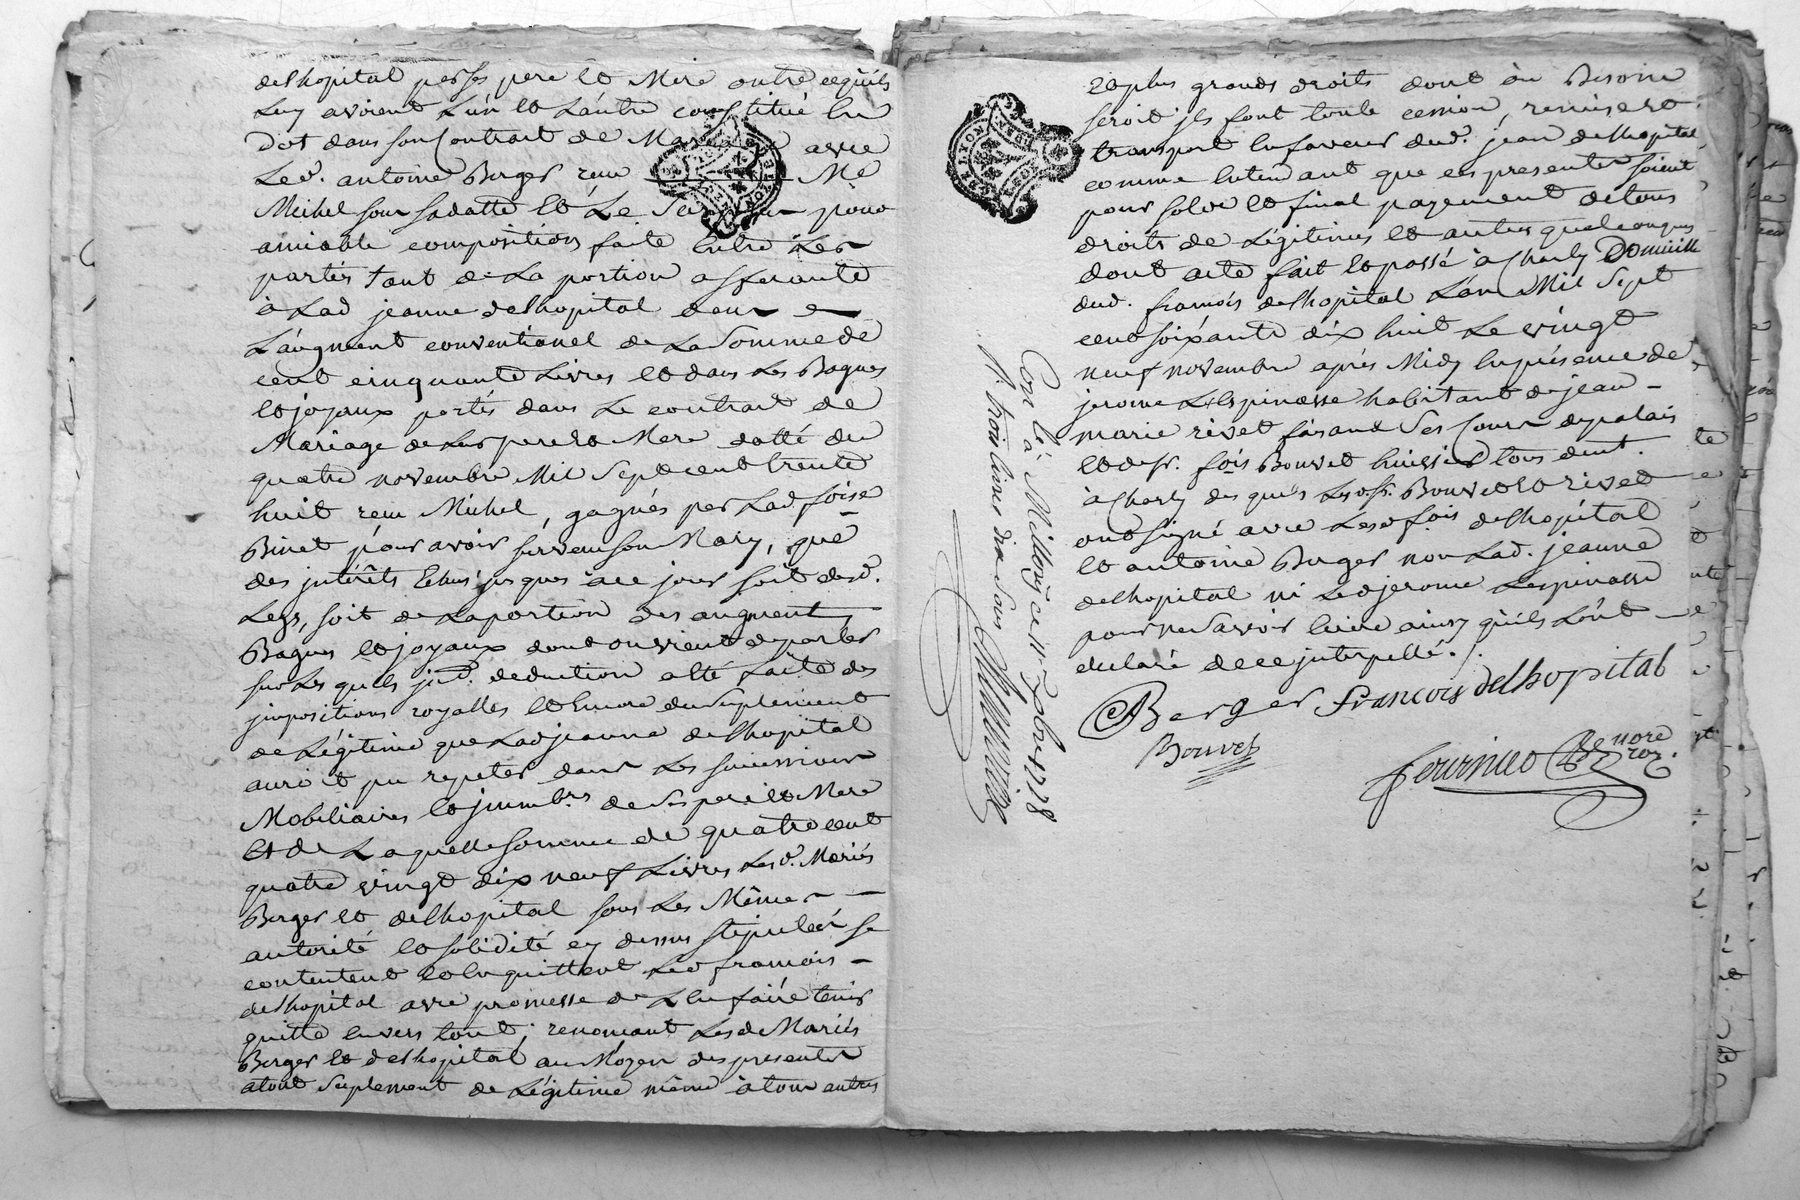 delhopital par ses pere et Mere outre cequils
Luy avoient L'un et L'autre constitué en
Dot dans son Contrat de Mariage avec
Led. antoine Berger reçu Me
Michel sous sa datte et Le pour
amiable composition faite Entre Les
partés tant de La portion afferante
à Lad jeanne delhopital dans
L'augment conventionel de La Somme de
cent cinquante Livres et dans Les Bagues
et joyaux portés dans Le contrat de
Mariage de Leurs pere et Mere datté du
quatre novembre Mil Sept cent trente
huit reçu Michel, gagnés par Lad foise
Binet pour avoir survecu son Mary, que
des jntérêts Echus jusques à ce jour soit dud.
Legs, soit de La portion des augment
Bagues et joyaux dont on vient de parler
sur Les quels jnt. deduction a été faite des
jmpositions royalles et Encore du Suplement
de Légitime que Lad jeanne delhopital
auroit pu repeter dans Les successions
Mobiliaires et jmmb.res de Ses pere et Mere
Et de Laquelle somme de quatre cent
quatre vingt dix neuf Livres Lesd. Mariés
Berger et delhopital sous Les Mêmes
autorité et solidité cy dessus stipulés se
contentent et en quittent Led francois
delhopital avec promesse de L'en faire tenir
quitte Envers tous; renoncant Lesd Mariés
Berger et delhopital au Moyen des presentes
a tout Suplement de Légitime même à tous autres
et plus grands droits dont au Besoin
seroit jls font toute cession, remise et
transport En faveur dud. jean delhopital
comme Entendant que ces presentes soient
pour solde et final payement de tous
droits de Légitimes et autres quelconques
dont acte fait et passé à Charly Domicille
dud. francois delhopital L'an Mil Sept
cent soixante dix huit Le vingt
neuf novembre après Midy En présence de
jerome Lespinasse habitant de jean
marie rivet faisant Ses Cours de palais
et de sr. fois Bouvet huissier tous demt.
à Charly des quels Lesd. srs. Bouvet et rivet
ont signé avec Lesd fois delhopital
et antoine Berger non Lad. jeanne
delhopital ni Led jerome Lespinasse
pour ne Savoir Ecrire ainsy qu'ils L'ont
declaré de ce jnterpellé./.
Berger francois delhopital
Bouvet
nore
roy.
Con lé à Millery ce 11 Xbre 1778
R. trois livres dix sous